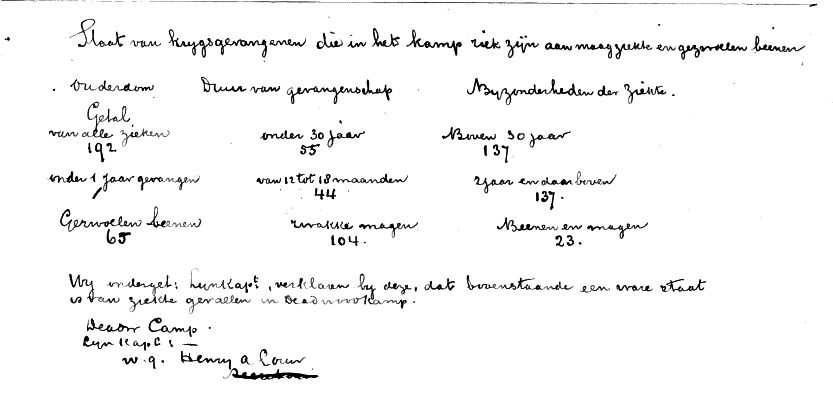 Staat van krygsgevangenen die in het kamp ziek zijn aan maagziekte en gezwollen beenen
Ouderdom Duur van gevangenschap Byzonderheden der ziekte.
Getal
van alle zieken onder 30 jaar Boven 30 jaar
192 55 137
onder 1 jaar gevangen van 12 tot 18 maanden 2 jaar en daarboven
44 137.
Gezwollen beenen zwakke magen Beenen en magen
65 104. 23.
Wy onderget: LynKapt, verklaren by deze, dat bovenstaande een ware staat
is van ziekte gevallen in Deadwoodkamp.
Camp.
Lyn Kapts: —
w.g. Henry A